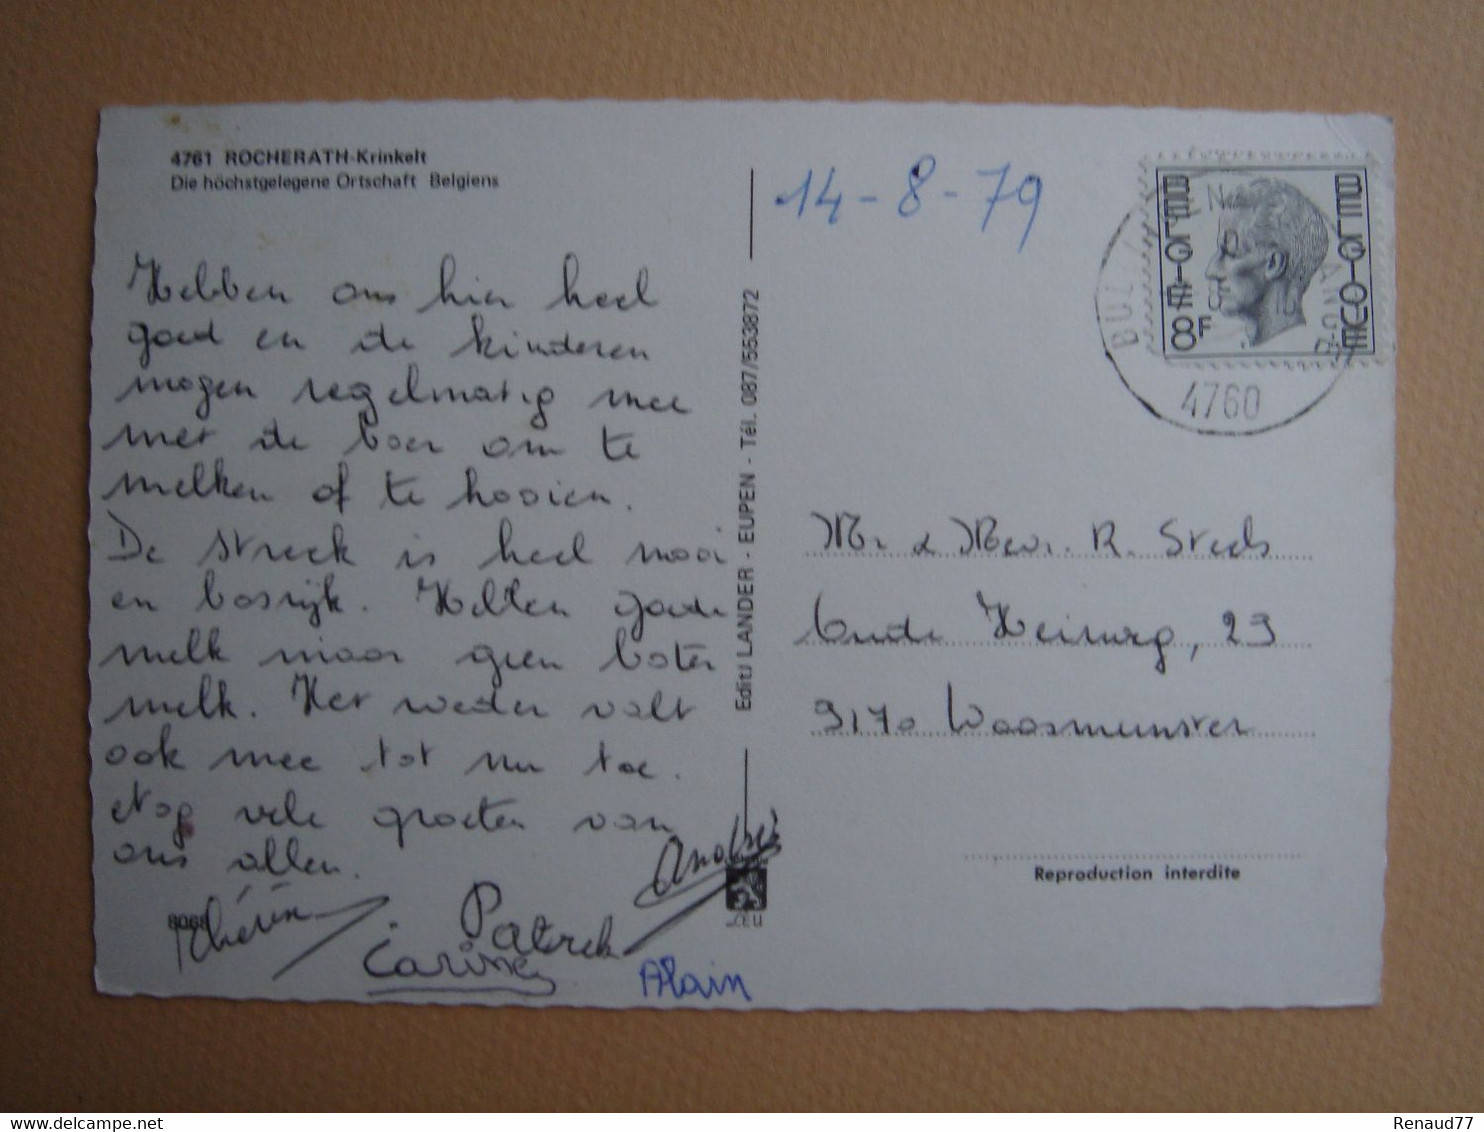 4761 ROCHERATH-Krinkelt
Die höchstgelegene Ortschaft Belgiens
Hebben ons hier heel
goed en de kinderen
mogen regelmatig mee
met de boer om te
melken of te hooien.
De streek is heel mooi
en bosrijk. Hebben goede
melk maar geen boter
melk. Het weder valt
ook mee tot nu toe.
Nog vele groeten van
ons allen.
8068
Patrick
Carine
Alain
Edit. LANDER - EUPEN - Tél. 087/553872
14-8-79
BELGIE BELGIQUE
8F
4760
Mr & Mevr. R. Steels
Oude Heirweg, 29
9170 Waasmunster
Reproduction interdite
Renaud77